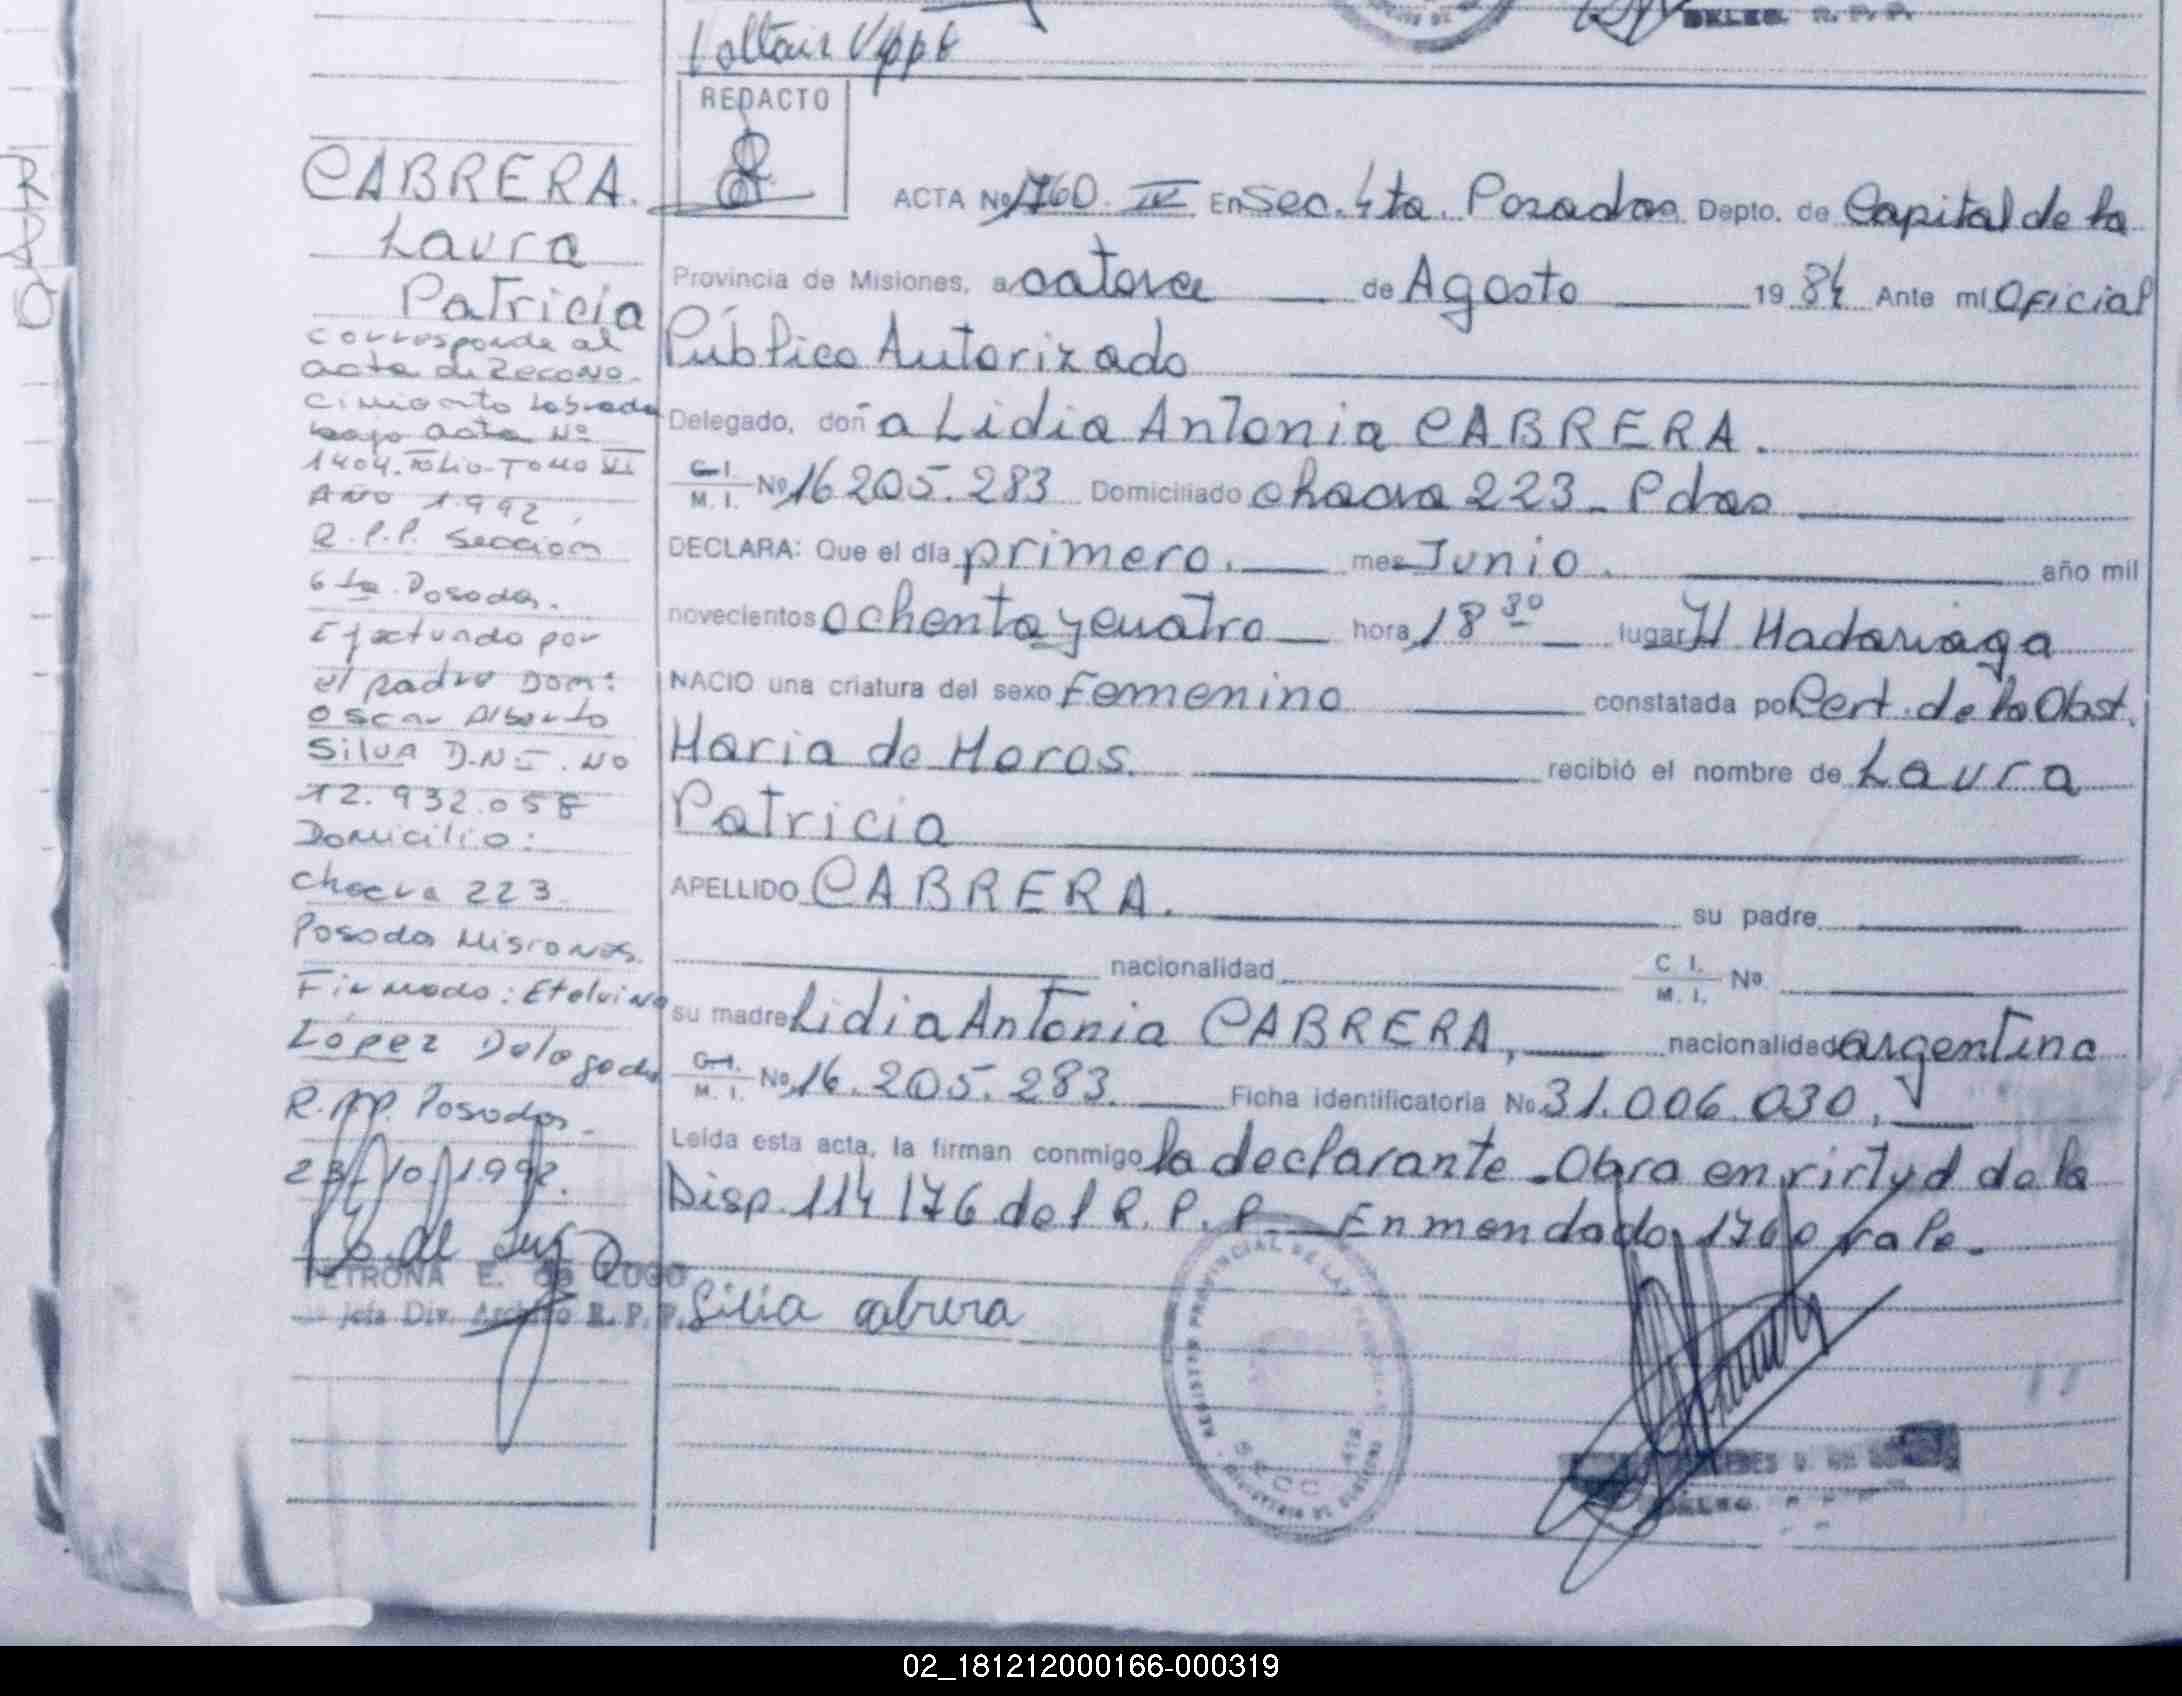 DELEG. R. P. P.
REDACTO
ACTA No 1760. IV En Sec. 4ta. Posadas Depto. de Capital de la
Provincia de Misiones, a catorce de Agosto 1984 Ante mi Oficial
Público Autorizado
Delegado, doña Lidia Antonia CABRERA.
C. I.
M. I. No 16205.283 Domiciliado chacra 223 - Pdas
DECLARA: Que el día primero. mes Junio. año mil
novecientos ochenta y cuatro hora 18 30 lugar H Madariaga
NACIO una criatura del sexo Femenino constatada por Cert. de la Obst.
Maria de Moros. recibió el nombre de Laura
Patricia
APELLIDO CABRERA. su padre
nacionalidad C. I.
M. I. No
su madre Lidia Antonia CABRERA, nacionalidad argentina
C. I.
M. I. No 16.205.283. Ficha identificatoria No 31.006.030.
Leída esta acta, la firman conmigo la declarante - Obra en virtud de la
Disp. 114/76 del R. P. P. Enmendado, 1760 vale.
CABRERA.
Laura
Patricia
corresponde al
acta de Recono-
cimiento labrada
bajo acta Nº
1404. Folio - Tomo VI
Año 1.992,
R.P.P. Sección
6ta Posadas.
Efectuado por
el padre Dom:
Oscar Alberto
Silva D.N.I. No
12.932.058
Domicilio:
chacra 223
Posadas Misiones.
Firmado: Etelvina
López Delegada
R.P.P. Posadas.
23/10/1992.
PETRONA E. de LUGO
Jefa Div. Archivo R. P. P.
REGISTRO PROVINCIAL DE LAS PERSONAS
SECC. 4TA
DELEG.
02_181212000166-000319